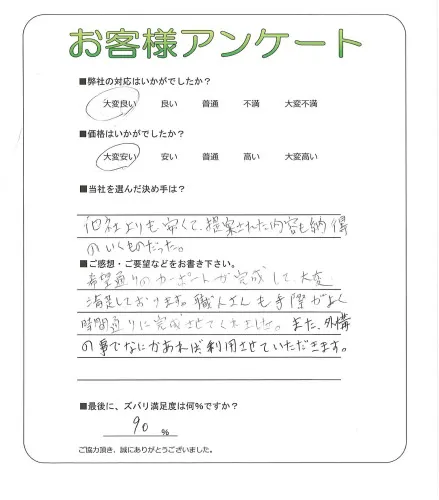 お客様アンケート
■弊社の対応はいかがでしたか？
大変良い 良い 普通 不満 大変不満
■価格はいかがでしたか？
大変安い 安い 普通 高い 大変高い
■当社を選んだ決め手は？
他社よりも安くて、提案された内容も納得
のいくものだった。
■ご感想・ご要望などをお書き下さい。
希望通りのカーポートが完成して、大変
満足しております。職人さんも手際がよく
時間通りに完成させてくれました。また、外構
の事でなにかあれば利用させていただきます。
■最後に、ズバリ満足度は何％ですか？
90 ％
ご協力頂き、誠にありがとうございました。